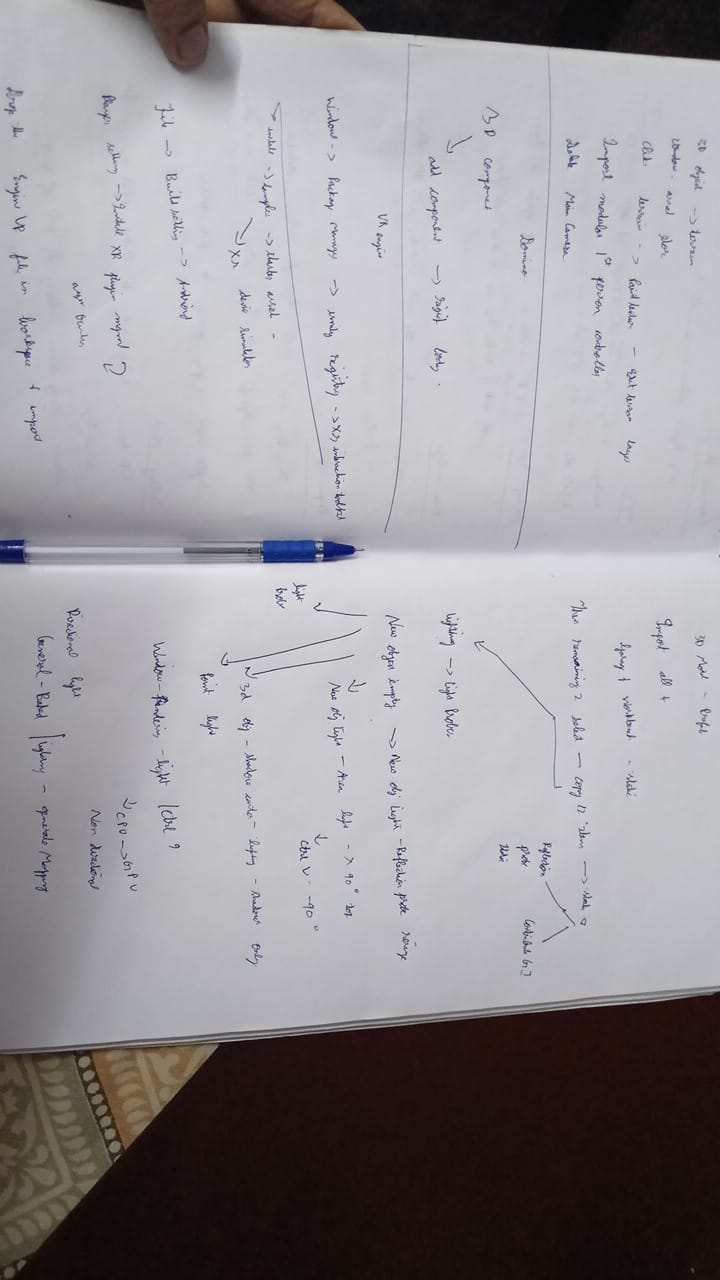 3D object -> terrain
window - asset store
click terrain -> Paint texture - Edit terrain layer
Import modular 1st person controller
Delete Main Camera
Domino
3D component
add component -> rigid body.
VR engine
Window -> Package manager -> unity registry -> XR interaction toolkit
install -> samples -> starter asset -
-> XR device simulator
File -> Build setting -> Android
Player setting -> install XR plugin mgmt
Drop the Engine VR file in workspace & import
3D Model -
Import all 4
& workbench - static
Then remaining 2 select - copy 12 item -> static
Reflection probe static
Contribute GI
Lighting -> light Probes
New object empty -> New obj light - Reflection probe range
New obj light - Area light - x 90°
ctrl V - -90°
light probe
3d obj - shadow - lighting - shadow only
Point light
Window - Rendering - light / ctrl 9
CPU -> GPU
Non directional
Directional light
General - Baked / lighting - generate Mapping